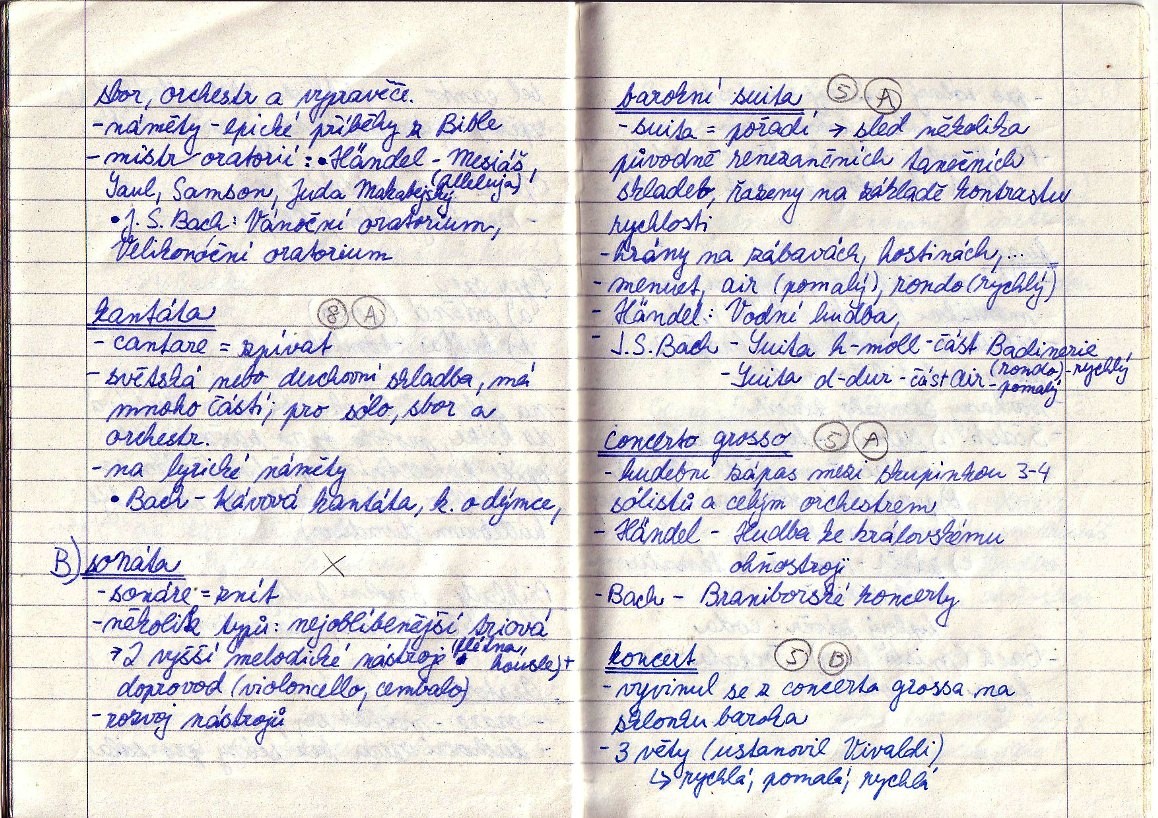 sbor, orchestr a vypravěče.
- náměty - epické příběhy z Bible
- mistr oratorií: • Händel - Mesiáš,
(alleluja)
Saul, Samson, Juda Makabejský
• J. S. Bach: Vánoční oratorium,
Velikonoční oratorium
kantáta 8 A
- cantare = zpívat
- světská nebo duchovní skladba, má
mnoho částí; pro sólo, sbor a
orchestr.
- na lyrické náměty
• Bach - Kávová kantáta, k. o dýmce,
B) sonáta ×
- sonáre = znít
- několik typů: nejoblíbenější triová
→ 2 vyšší melodické nástroje (flétna, housle) +
doprovod (violoncello, cembalo)
- rozvoj nástrojů
barokní suita 5 A
- suita = pořadí → sled několika
původně renezančních tanečních
skladeb, řazeny na základě kontrastu
rychlosti
- hrány na zábavách, hostinách,...
- menuet, air (pomalý), rondo (rychlý)
- Händel: Vodní hudba,
- J.S. Bach - Suita h-moll - část Badinerie
(rondo) - rychlý
- Suita d-dur - část Air - pomalý
concerto grosso 5 A
- hudební zápas mezi skupinkou 3-4
sólistů a celým orchestrem
- Händel - Hudba ke královskému
ohňostroji
- Bach - Braniborské koncerty
koncert 5 B
- vyvinul se z concerta grossa na
sklonku baroka
- 3 věty (ustanovil Vivaldi)
↳ rychlá, pomalá, rychlá